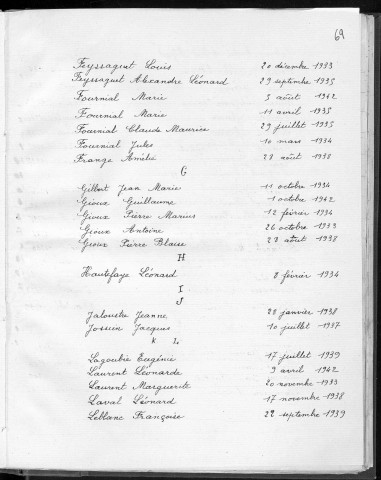 69
Feyssaguet Louis 20 décembre 1933
Feyssaguet Alexandre Léonard 29 septembre 1935
Fournial Marie 5 août 1942
Fournial Marie 11 avril 1935
Fournial Claude Maurice 29 juillet 1935
Fournial Jules 10 mars 1934
Frange Amélie 28 août 1938
G
Gilbert Jean Marie 11 octobre 1934
Gioux Guillaume 1 octobre 1942
Gioux Pierre Marius 12 février 1934
Gioux Antoine 26 octobre 1933
Gioux Pierre Blaise 23 août 1938
H
Hautefaye Léonard 8 février 1934
I
J
Jaloustre Jeanne 28 janvier 1938
Jossin Jacques 10 juillet 1937
K L
Lagoubie Eugénie 17 juillet 1939
Laurent Léonarde 9 avril 1942
Laurent Marguerite 20 novembre 1933
Laval Léonard 17 novembre 1938
Leblanc Françoise 22 septembre 1939